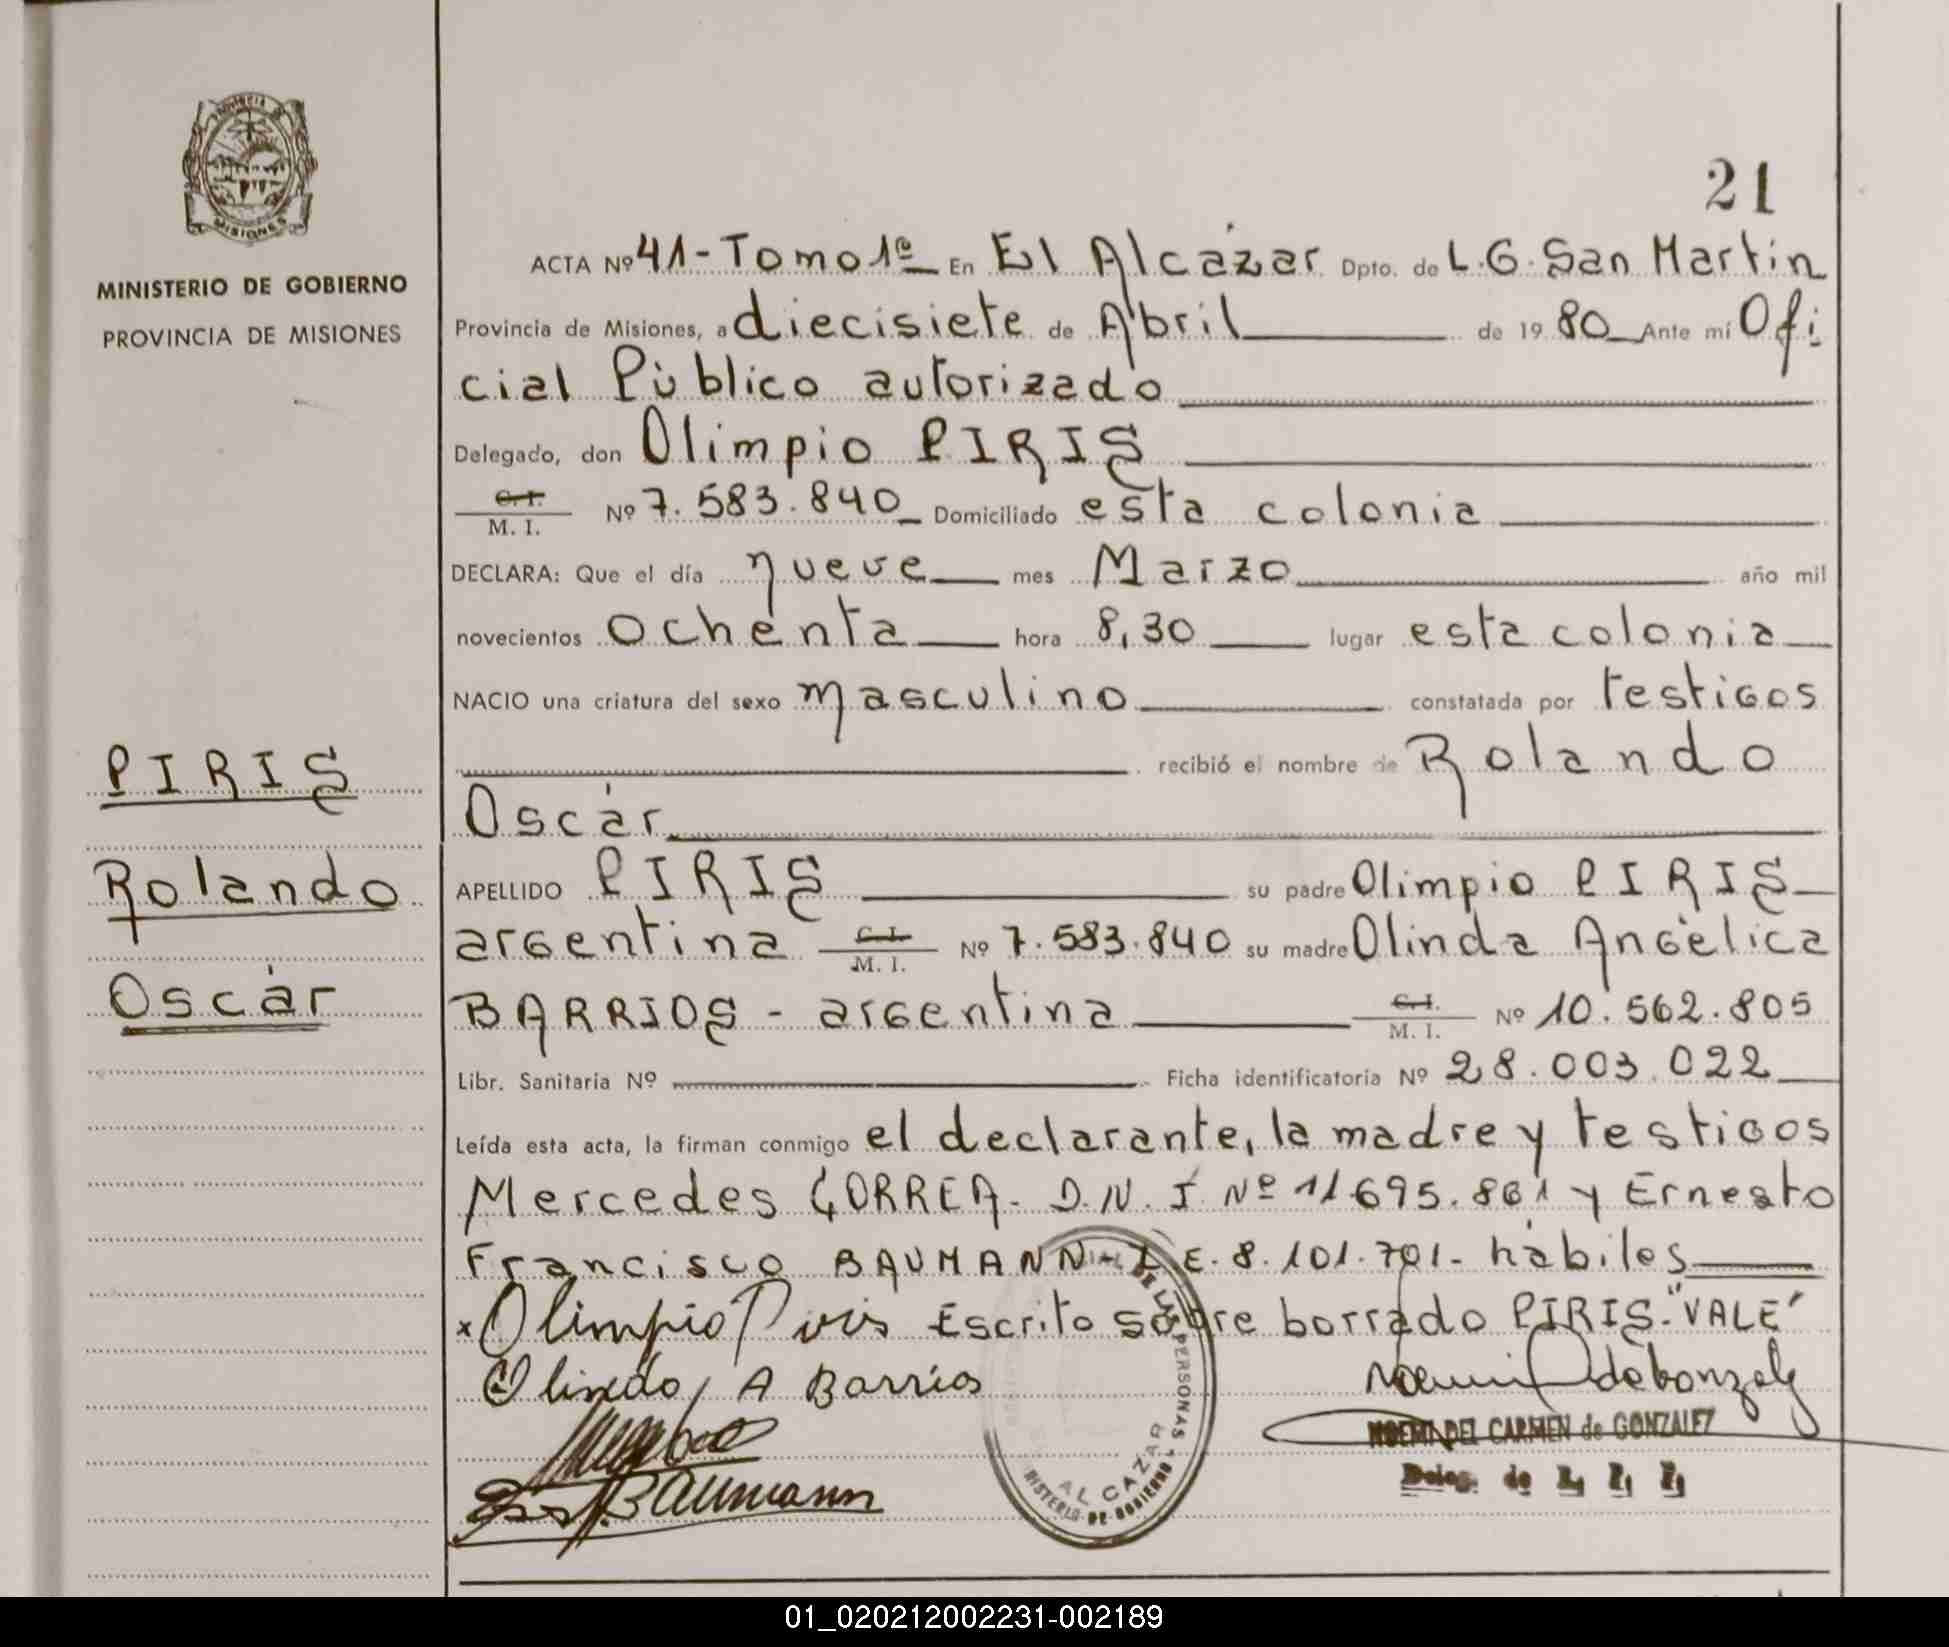 PROVINCIA DE
MISIONES
MINISTERIO DE GOBIERNO
PROVINCIA DE MISIONES
PIRIS
Rolando
Oscár
21
ACTA Nº 41-Tomo 1º En El Alcázar Dpto. de L.G. San Martin
Provincia de Misiones, a diecisiete de Abril de 1980 Ante mí Ofi
cial Público autorizado
Delegado, don Olimpio PIRIS
C.I.
M. I. Nº 7.583.840 Domiciliado esta colonia
DECLARA: Que el día nueve mes Marzo año mil
novecientos ochenta hora 8,30 lugar esta colonia
NACIO una criatura del sexo masculino constatada por testigos
recibió el nombre de Rolando
Oscár
APELLIDO PIRIS su padre Olimpio PIRIS
argentina C.I. M. I. Nº 7.583.840 su madre Olinda Angélica
BARRIOS - argentina C.I. M. I. Nº 10.562.805
Libr. Sanitaria Nº Ficha identificatoria Nº 28.003.022
Leída esta acta, la firman conmigo el declarante, la madre y testigos
Mercedes CORREA- D.N.I Nº 11.695.861 y Ernesto
Francisco BAUMANN- L E. 8.101.701- hábiles
x Olimpio Piris Escrito sobre borrado PIRIS-"VALE"
Olinda A Barrios
Baumann
DE LAS PERSONAS
AL CAZAR
MINISTERIO DE GOBIERNO
NOEMI DEL CARMEN de GONZALEZ
Deleg. de
01_020212002231-002189